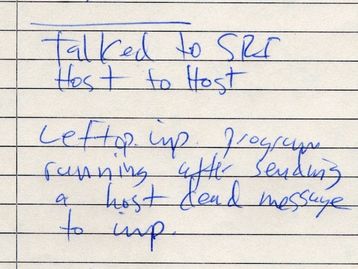 Talked to SRI
Host to Host
Left op. imp. program
running after sending
a host dead message
to imp.